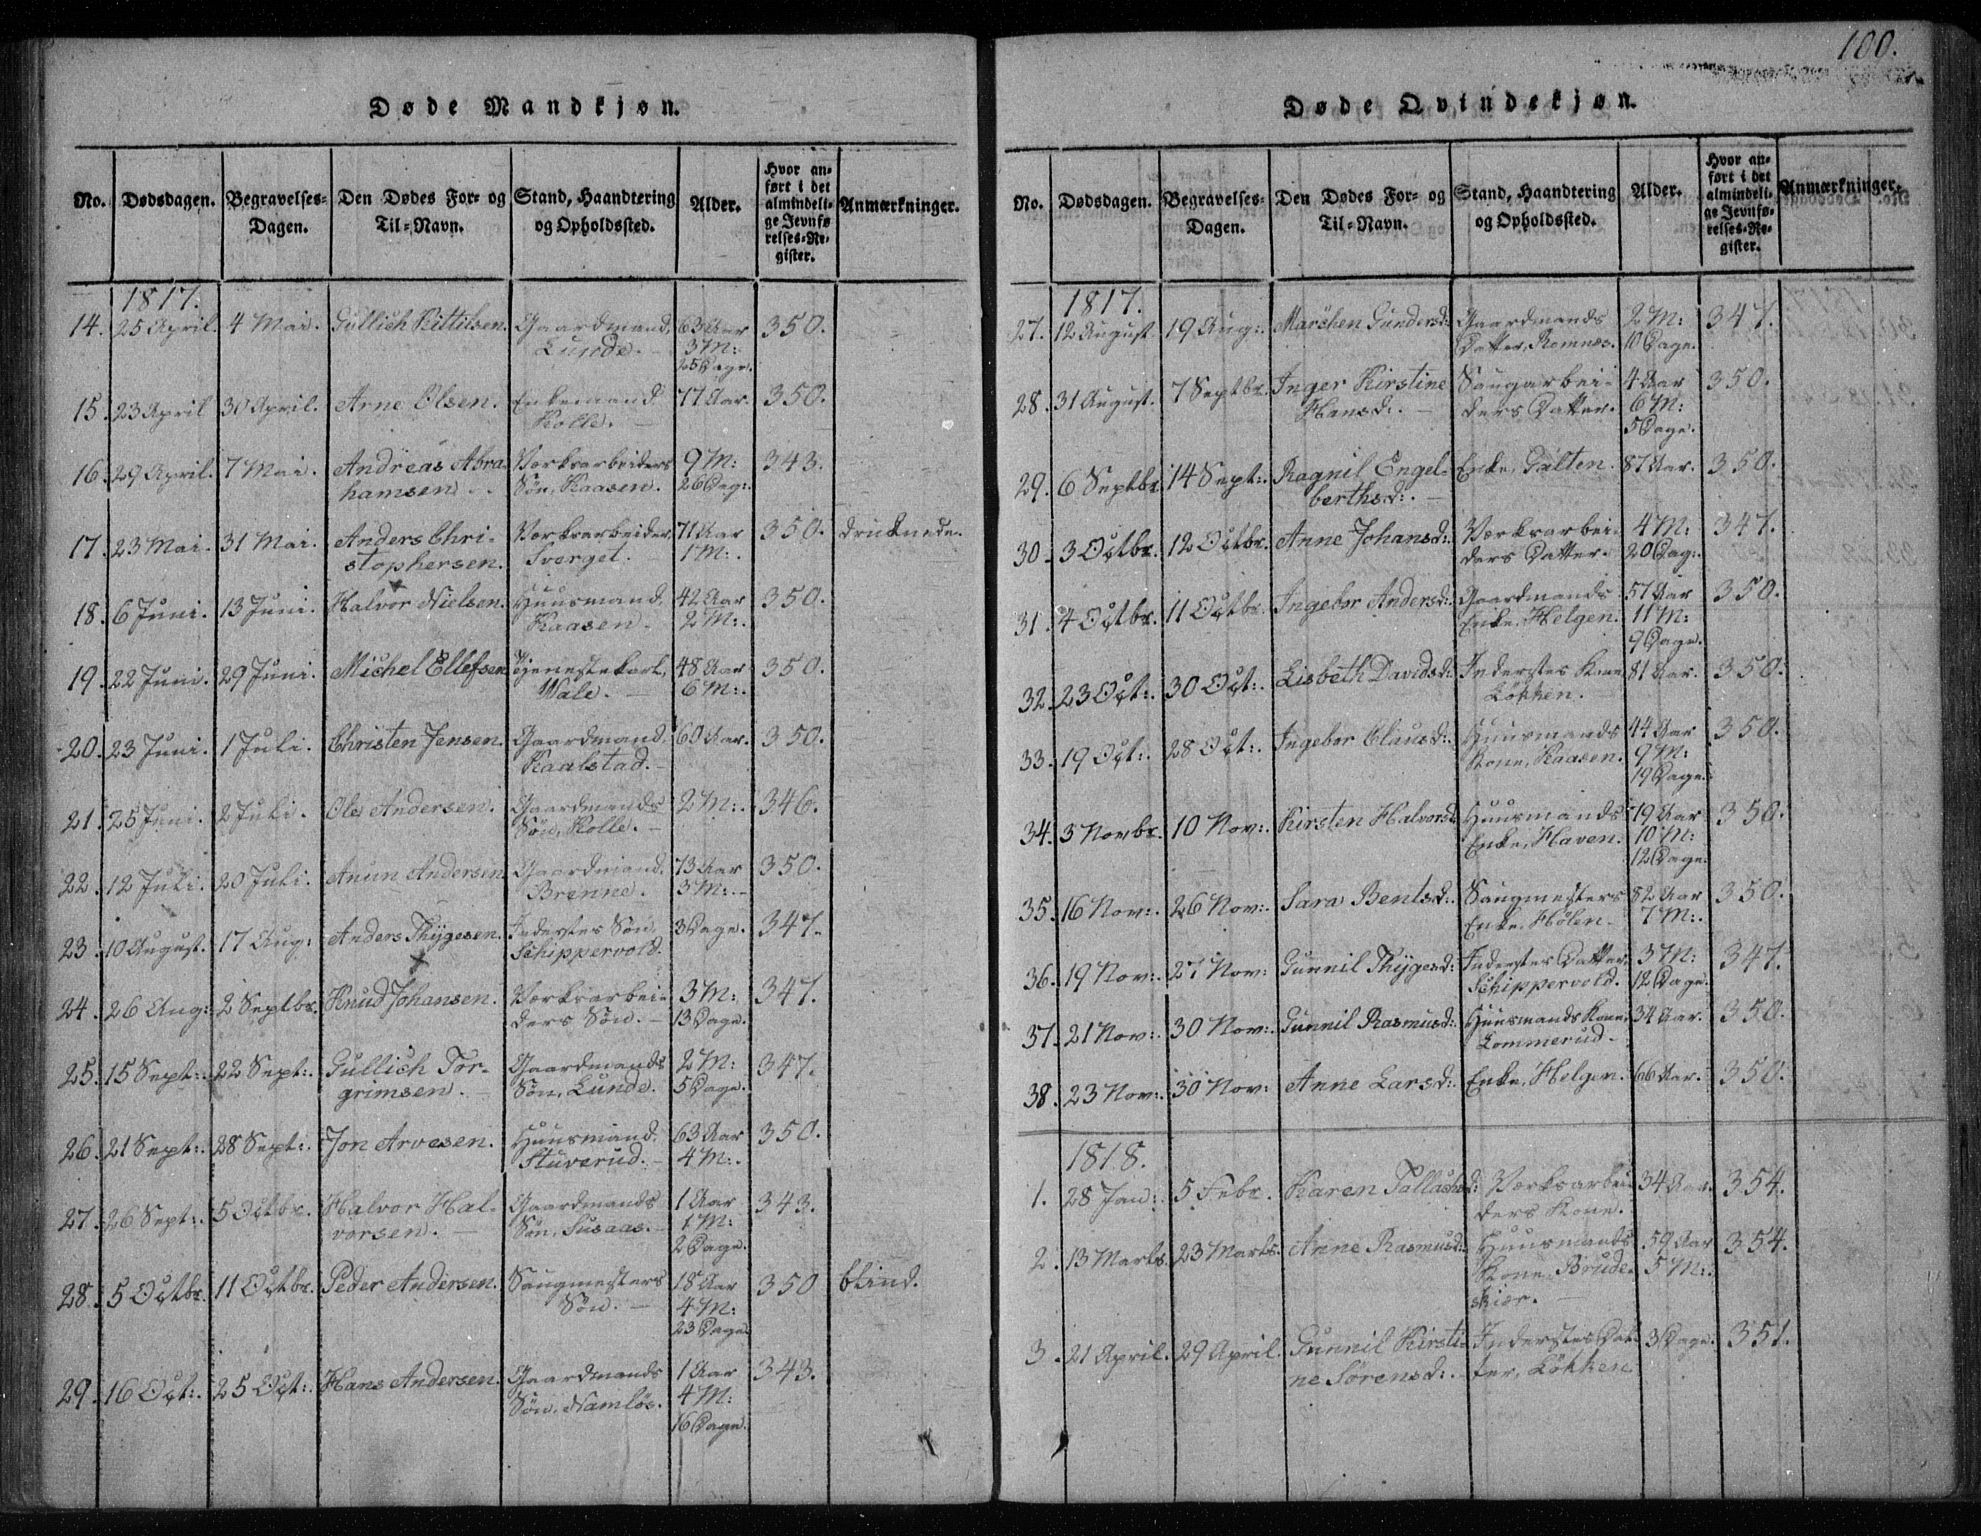 Døde Mandkjøn.
No. Dødsdagen. Begravelses-Dagen. Den Dødes For- og Til-Navn. Stand, Haandtering og Opholdssted. Alder. Hvor anført i det almindelige Jevnførelses-Register. Anmærkninger.
1817.
14. 25 April. 4 Mai. Gullich Kittilsen. Gaardmand, Lunde. 63 Aar 3 M: 25 Dage. 350.
15. 23 April 30 April. Arne Olsen. Enkemand Kolle. 77 Aar. 350.
16. 29 April. 7 Mai. Andreas Abrahamsen. Værksarbeiders Søn, Kaasen. 9 M: 26 Dag: 343.
17. 23 Mai. 31 Mai. Anders Christophersen. Værksarbeider, Sverget. 71 Aar 1 M: 350. drucknede.
18. 6 Juni. 13 Juni. Halvor Nielsen. Huusmand, Kaasen. 42 Aar 2 M: 350.
19. 22 Juni. 29 Juni. Michel Ellefsen Tjenestekarl, Wale. 48 Aar 6 M: 350.
20. 23 Juni. 1 Juli. Christen Jensen. Gaardmand, Kaalstad. 60 Aar. 350.
21. 25 Juni. 2 Juli. Ole Andersen. Gaardmands Søn, Kolle. 2 M: 346.
22. 12 Juli. 20 Juli. Anun Andersen Gaardmand, Brenne. 73 Aar 3 M: 350.
23. 10 August. 17 Aug: Anders Thygesen. Inderstes Søn, Schippervold. 3 Dage. 347.
24. 26 Aug: 2 Septbr. Knud Johansen. Værksarbeiders Søn. 3 M: 13 Dage. 347.
25. 15 Sept: 22 Sept: Gullich Torgrimsen. Gaardmands Søn, Lunde. 2 M: 5 Dage. 347.
26. 21 Sept: 28 Sept: Jon Arvesen. Huusmand, Stuverud. 63 Aar 4 M: 350.
27. 26 Sept: 5 Octbr. Halvor Halvorsen. Gaardmands Søn, Susaas. 1 Aar 1 M: 2 Dage. 343.
28. 5 Octbr. 11 Octbr. Peder Andersen. Saugmesters Søn. 18 Aar 4 M: 23 Dage. 350 blind.
29. 16 Oct: 25 Oct: Hans Andersen. Gaardmands Søn, Namløs. 1 Aar 4 M: 16 Dage. 343.
100.
Døde Qvindekjøn.
No. Dødsdagen. Begravelses-Dagen. Den Dødes For- og Til-Navn. Stand, Haandtering og Opholdssted. Alder. Hvor anført i det almindelige Jevnførelses-Register. Anmærkninger.
1817.
27. 12 August. 19 Aug: Marchen Gundersd: Gaardmands Datter, Romnes. 2 M: 10 Dage. 347.
28. 31 August. 7 Septbr. Inger Kirstine Hansd: Saugarbeiders Datter. 4 Aar 6 M: 5 Dage. 350.
29. 6 Septbr. 14 Sept: Ragnil Engelberthsd: Enke, Galten. 87 Aar. 350.
30. 3 Octbr. 12 Octbr. Anne Johansd: Værksarbeiders Datter. 4 M: 20 Dag: 347.
31. 4 Octbr. 11 Octbr. Ingebor Andersd: Gaardmands Enke, Helgen. 57 Aar 11 M: 9 Dage. 350.
32. 23 Oct: 30 Oct: Lisbeth Davidsd: Inderstes Kone Løkken. 81 Aar. 350.
33. 19 Oct: 28 Oct: Ingebor Clausd: Huusmands Kone, Kaasen. 44 Aar 9 M: 19 Dage. 350.
34. 3 Novbr. 10 Nov: Kirsten Halvorsd: Huusmands Enke, Haven. 79 Aar 10 M: 12 Dage. 350.
35. 16 Nov: 26 Nov: Sara Bentsd: Saugmesters Enke, Holen. 82 Aar 7 M: 350.
36. 19 Nov: 27 Nov: Gunnil Thygesd: Inderstes Datter, Schippervold. 3 M: 12 Dage. 347.
37. 21 Nov: 30 Nov: Gunnil Rasmusd: Huusmands Kone, Lommerud. 34 Aar. 350.
38. 23 Nov: 30 Nov: Anne Larsd: Enke, Helgen. 66 Aar. 350.
1818.
1. 28 Jan: 5 Febr. Karen Tallachsd: Værksarbeiders Kone. 34 Aar. 354.
2. 13 Marts. 23 Marts. Anne Rasmusd: Huusmands Kone, Brudeskiær. 59 Aar 5 M: 354.
3. 21 April. 29 April. Gunnil Kirstine Sørensd: Inderstes Datter, Løkken 3 Dage. 351.